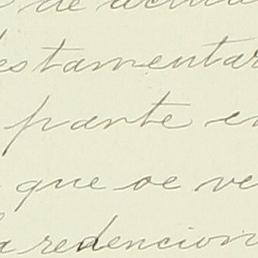 de
testamentar
parte e
que se ve
la redencion